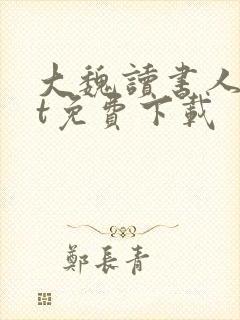 大魏讀書人
t免費下載
鄭長青